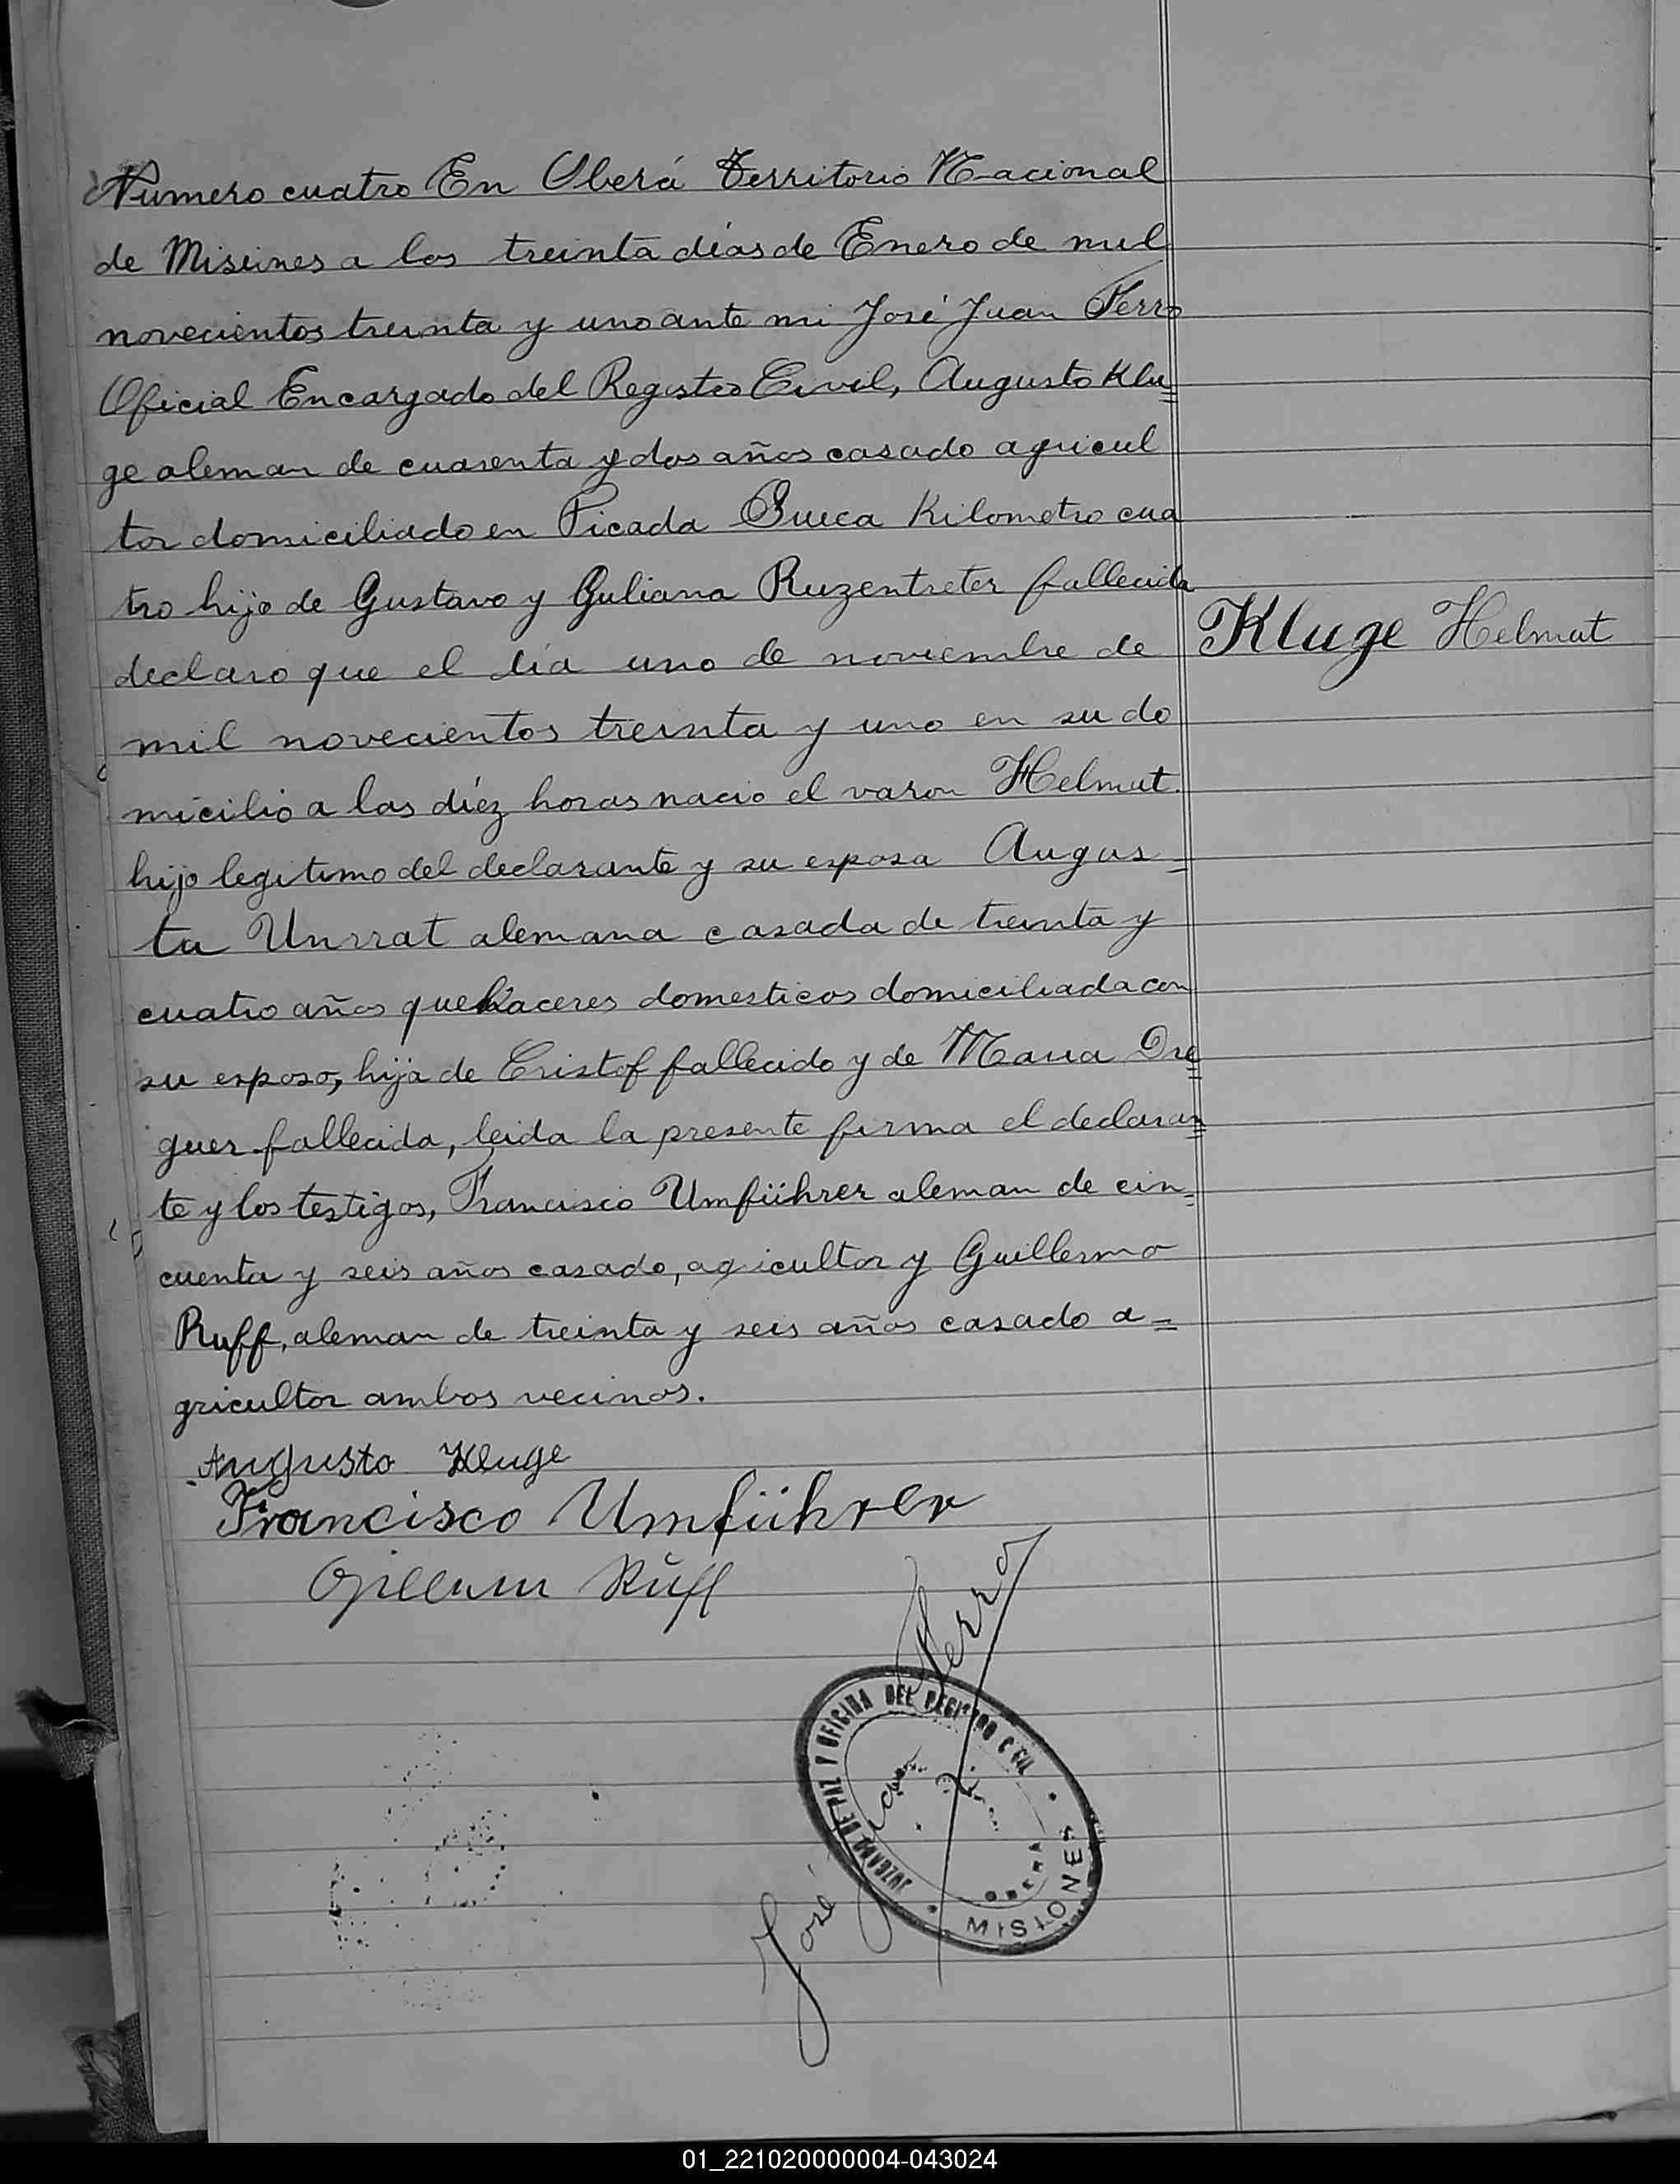 Numero cuatro En Oberá Territorio Nacional
de Misiones a los treinta dias de Enero de mil
novecientos treinta y uno ante mi José Juan Ferro
Oficial Encargado del Registro Civil, Augusto Klu=
ge aleman de cuarenta y dos años casado agricul
tor domiciliado en Picada Sueca Kilometro cua
tro hijo de Gustavo y Guliana Ruzentreter fallecida
declaro que el dia uno de noviembre de
Kluge Helmut
mil novecientos treinta y uno en su do
micilio a las diéz horas nacio el varon Helmut
hijo legitimo del declarante y su esposa Augus=
ta Unrrat alemana casada de treinta y
cuatro años quehaceres domesticos domiciliada con
su esposo, hija de Cristof fallecido y de Maria Dre=
guer fallecida, leida la presente firma el declaran=
te y los testigos, Francisco Umführer aleman de cin=
cuenta y seis años casado, agricultor y Guillermo
Ruff, aleman de treinta y seis años casado a=
gricultor ambos vecinos.
Augusto Kluge
Francisco Umführer
Ruff
José Ferro
JUZGADO DE PAZ Y OFICINA DEL REGISTRO CIVIL
OBERA
MISIONES
01_221020000004-043024